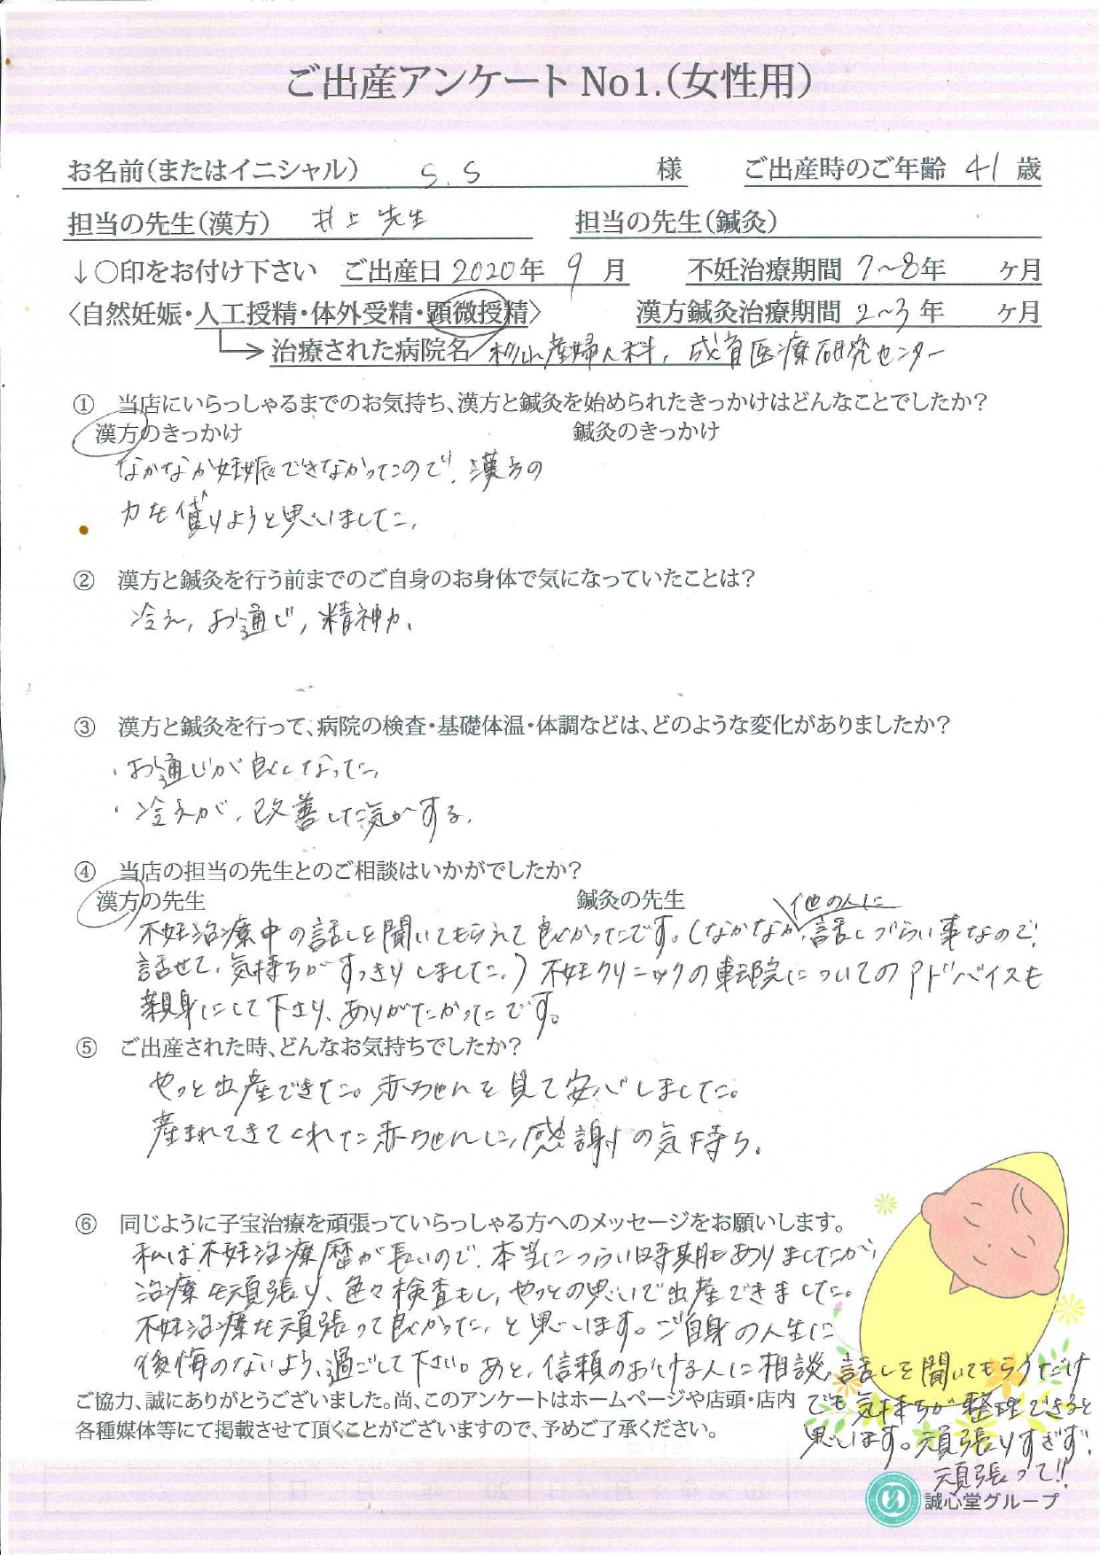 ご出産アンケートNo1.(女性用)
お名前(またはイニシャル) S.S 様 ご出産時のご年齢 41 歳
担当の先生(漢方) 井上先生 担当の先生(鍼灸)
↓○印をお付け下さい ご出産日 2020年 9月 不妊治療期間 7~8年 ヶ月
〈自然妊娠・人工授精・体外受精・顕微授精〉 漢方鍼灸治療期間 2~3年 ヶ月
治療された病院名 杉山産婦人科, 成育医療研究センター
① 当店にいらっしゃるまでのお気持ち、漢方と鍼灸を始められたきっかけはどんなことでしたか?
漢方のきっかけ 鍼灸のきっかけ
なかなか妊娠できなかったので、漢方の
力を借りようと思いました。
② 漢方と鍼灸を行う前までのご自身のお身体で気になっていたことは?
冷え, お通じ, 精神力、
③ 漢方と鍼灸を行って、病院の検査・基礎体温・体調などは、どのような変化がありましたか?
・お通じが良くなった
・冷えが、改善した気がする。
④ 当店の担当の先生とのご相談はいかがでしたか?
漢方の先生 鍼灸の先生
不妊治療中の話しを聞いてもらえて良かったです。(なかなか、他の人に話しづらい事なので、
話せて、気持ちがすっきりしました。)不妊クリニックの転院についてのアドバイスも
親身にして下さり、ありがたかったです。
⑤ ご出産された時、どんなお気持ちでしたか?
やっと出産できた。赤ちゃんを見て安心しました。
産まれてきてくれた赤ちゃんに、感謝の気持ち。
⑥ 同じように子宝治療を頑張っていらっしゃる方へのメッセージをお願いします。
私は不妊治療歴が長いので、本当につらい時期もありましたが、
治療を頑張り、色々検査もし、やっとの思いで出産できました。
不妊治療を頑張って良かった、と思います。ご自身の人生に
後悔のないよう、過ごして下さい。あと、信頼のおける人に相談、話しを聞いてもらうだけ
でも気持ちが整理できると
思います。頑張りすぎず、
頑張って!!
ご協力、誠にありがとうございました。尚、このアンケートはホームページや店頭・店内
各種媒体等にて掲載させて頂くことがございますので、予めご了承ください。
誠心堂グループ